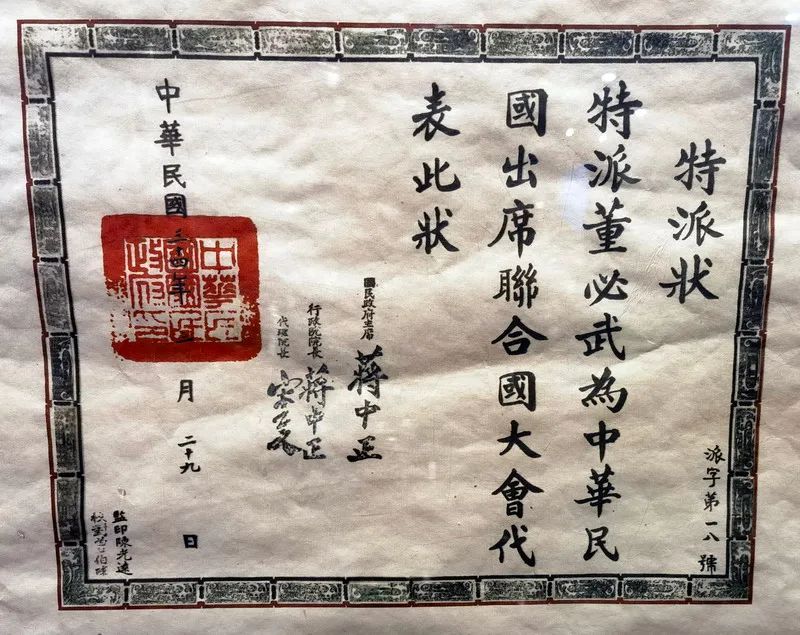 特派狀
特派董必武為中華民
國出席聯合國大會代
表此狀
派字第一八號
國民政府主席
蔣中正
行政院院長
蔣中正
代理院長
宋子文
中華民國三十四年三月二十九日
監印陳光遠
校對